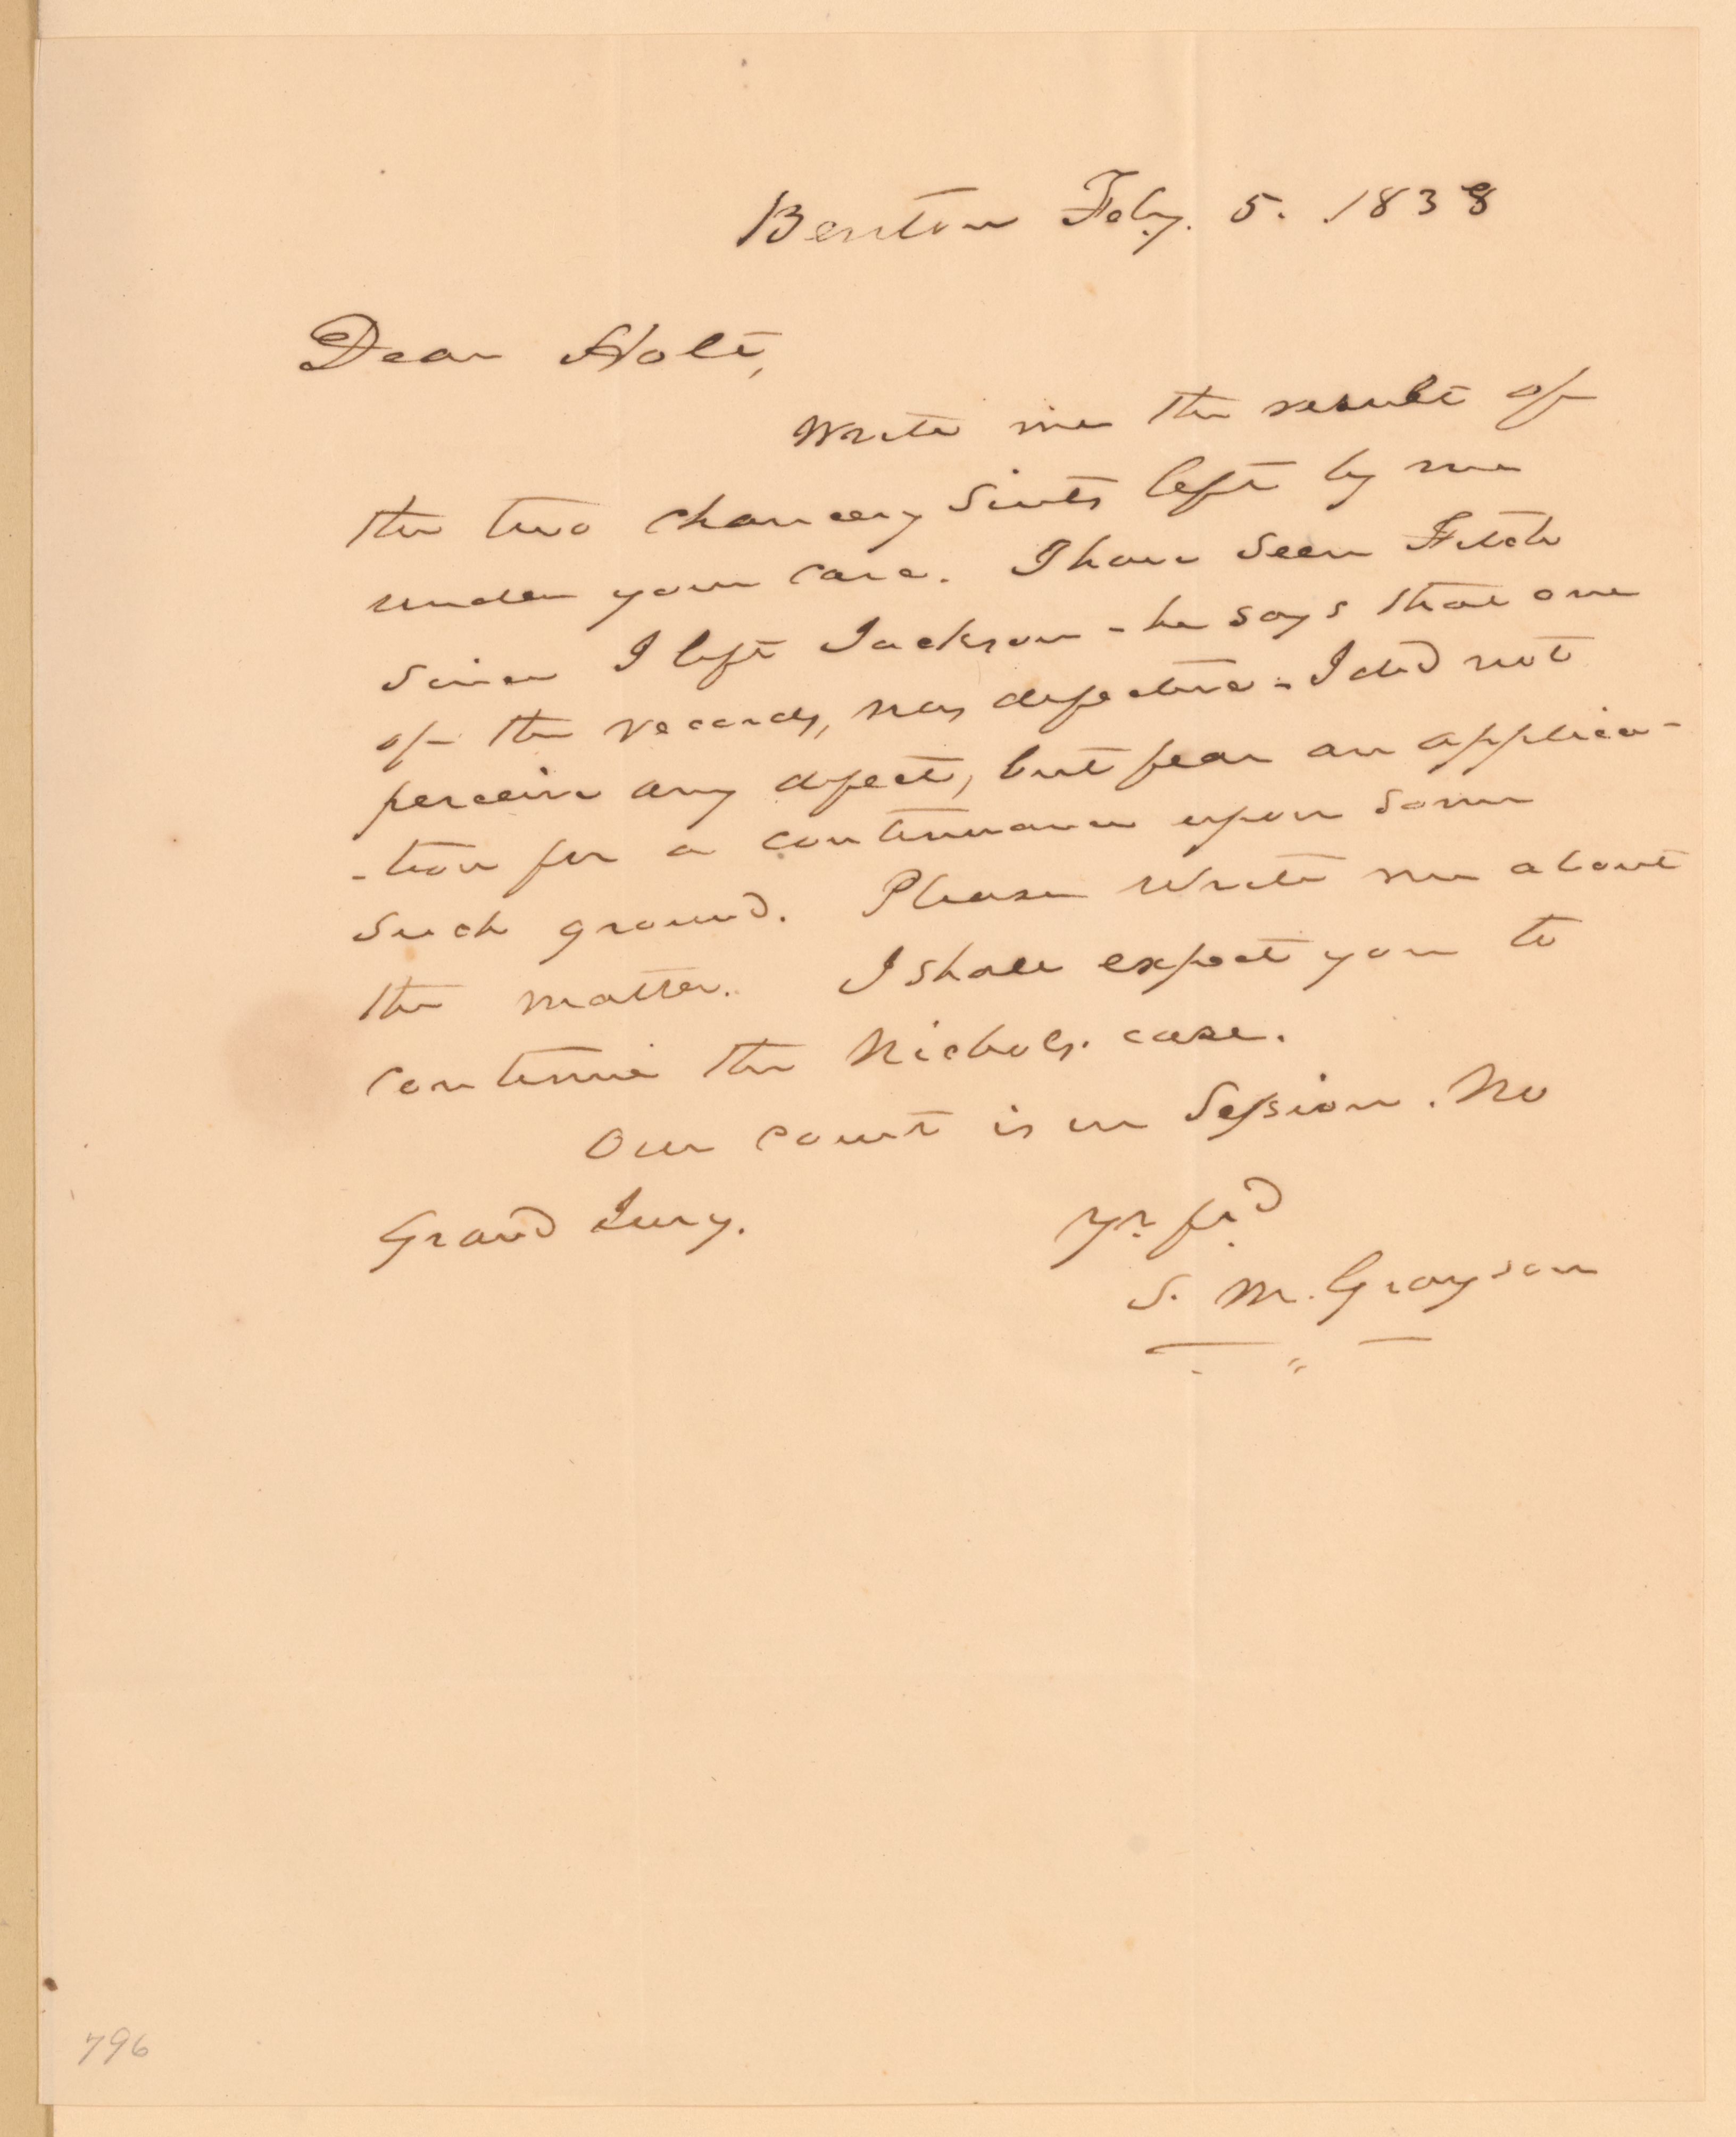 Benton Feby. 5. 1838
Dear Holt,
Write me the result of
the two chancery suits left by me
under your care. I have seen Fitch
since I left Jackson - he says that one
of the records, was defective - I did not
perceive any defect, but fear an applica-
-tion for a continuance upon some
such ground. Please write me about
the matter. I shall expect you to
continue the Nichols. case.
Our court is in Session. No
Grand Jury.
Yr. frd
S. M. Grayson
796